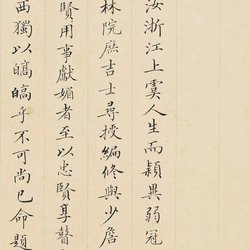 汝浙江上虞人生而穎異弱冠
林院庶吉士尋授編修與少詹
賢用事獻媚者至以忠賢享瞽
西獨以皜皜乎不可尚已命題